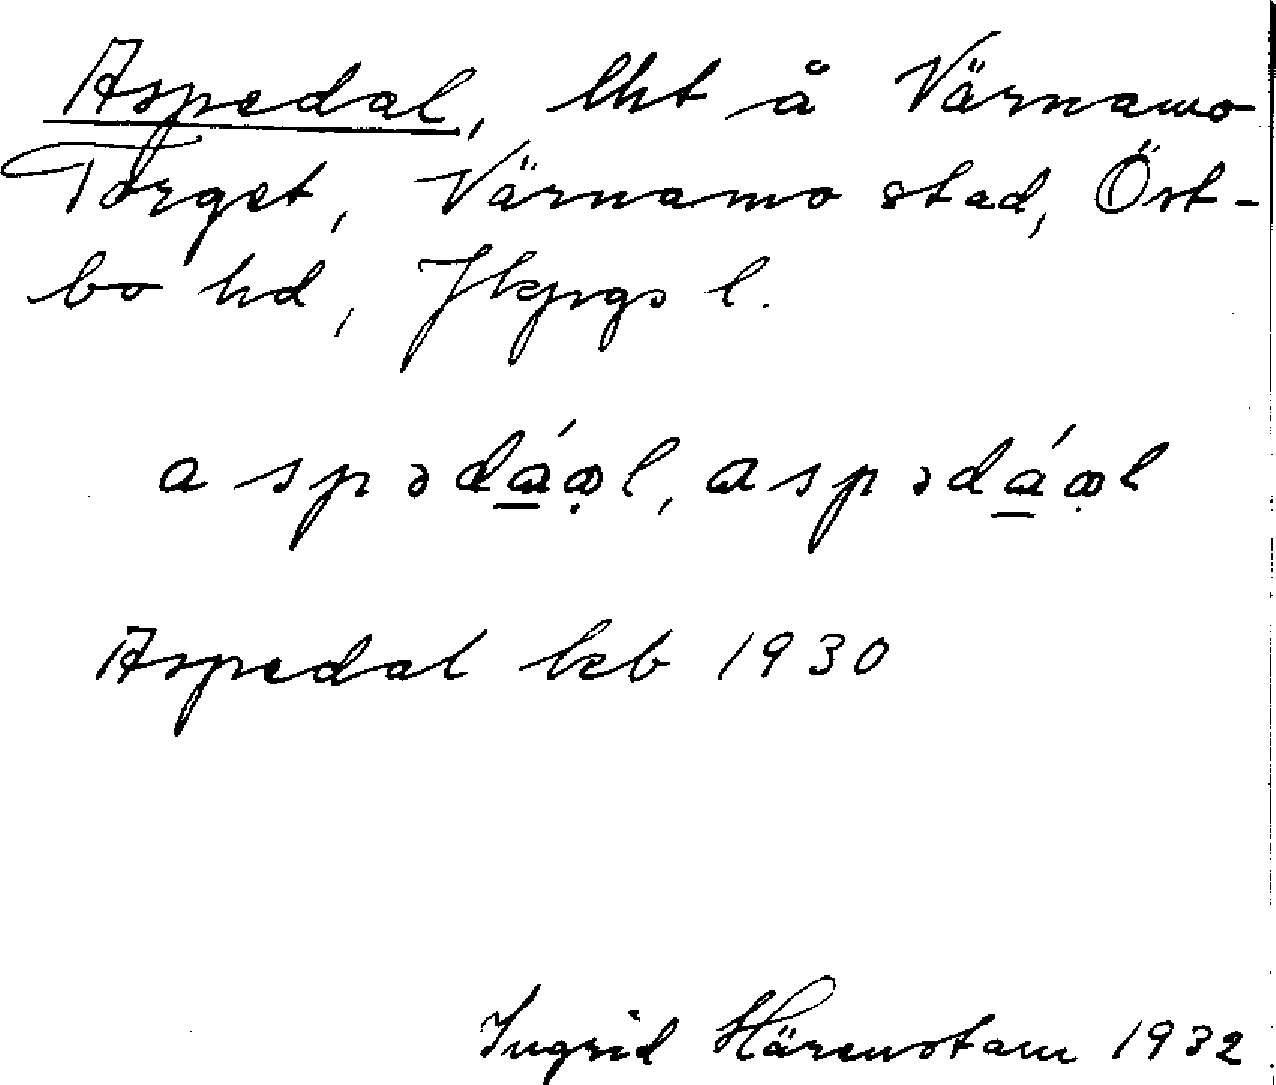 Aspedal, lht å Värnamo
Torget, Värnamo stad, Öst-
bo hd, Jkpgs l.
aspədá̲ꝏ̣l, aspədá̲ꝏ̣l
Aspedal kb 1930
Ingrid Härenstam 1932